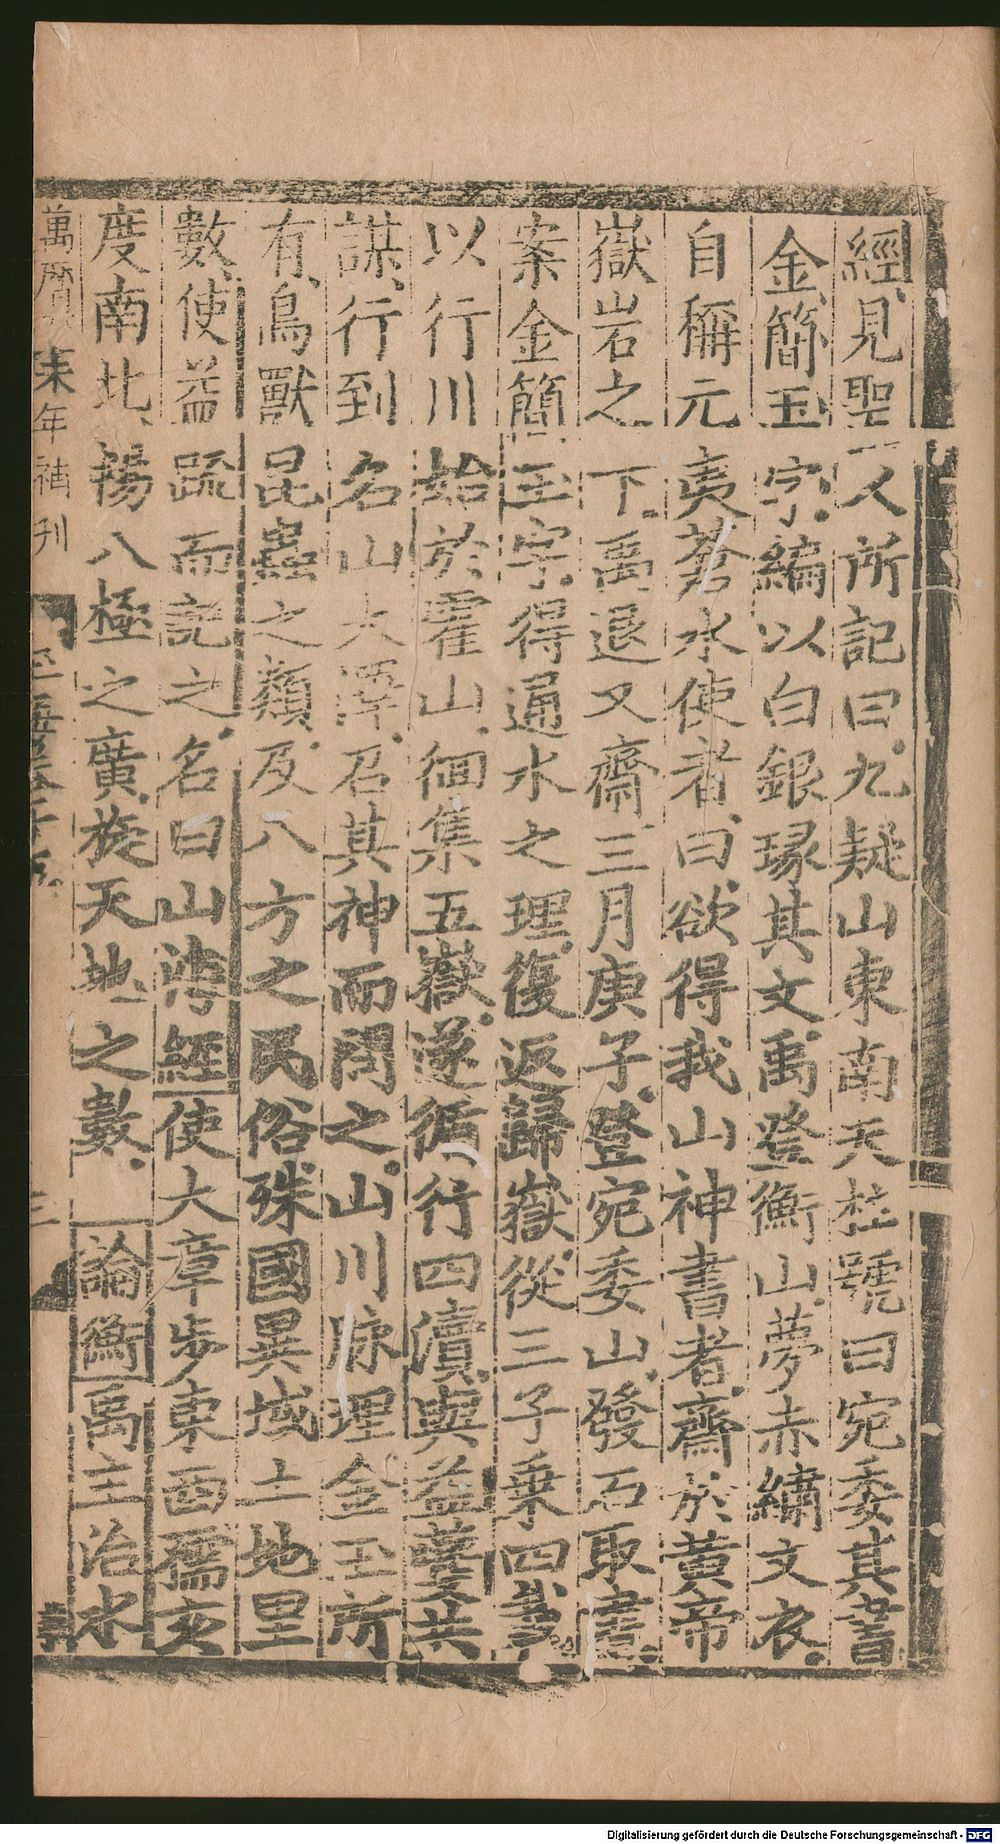 經見聖人所記曰九疑山東南天柱號曰宛委其書
金簡玉字編以白銀瑑其文禹登衡山夢赤繡文衣
自稱元夷蒼水使者曰欲得我山神書者齋於黃帝
嶽岩之下禹退又齋三月庚子登宛委山發石取書
案金簡玉字得通水之理復返歸嶽從三子乗四載
以行川始於霍山徊集五嶽遂循行四瀆與益夔共
謀行到名山大澤召其神而問之山川脉理金玉所
有鳥獸昆蟲之類及八方之民俗殊國異域土地里
數使益疏而記之名曰山海經使大章步東西孺亥
度南北暢八極之廣旋天地之數論衡禹主治水
萬曆癸未年補刊
玉海卷十五
三
Digitalisierung gefördert durch die Deutsche Forschungsgemeinschaft - DFG